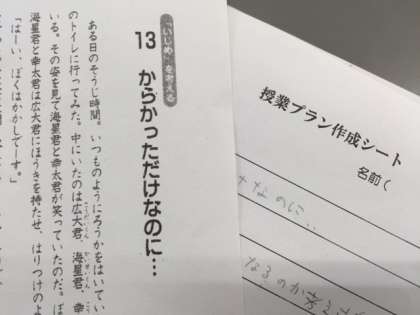 「いじめ」を考える
13 からかっただけなのに…
ある日のそうじ時間。いつものようにろうかをはいてい
のトイレに行ってみた。中にいたのは広大君、海星君、幸
こうだいくん かいせいくん
いる。その姿を見て海星君と幸太君が笑っていたのだ。ぼ
海星君と幸太君は広大君にほうきを持たせ、はりつけのよ
「はーい、ぼくはかかしでーす。」
授業プラン作成シート
名前(
なのに…
なるのか考え